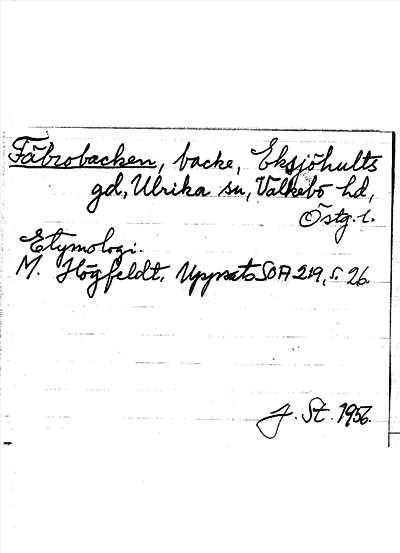 Fäbrobacken, backe, Eksjöhults
gd, Ulrika sn, Valkebo hd,
Östg. l.
Etymologi.
M. Högfeldt, Uppsats SOA 219, s. 26.
J. St. 1956.